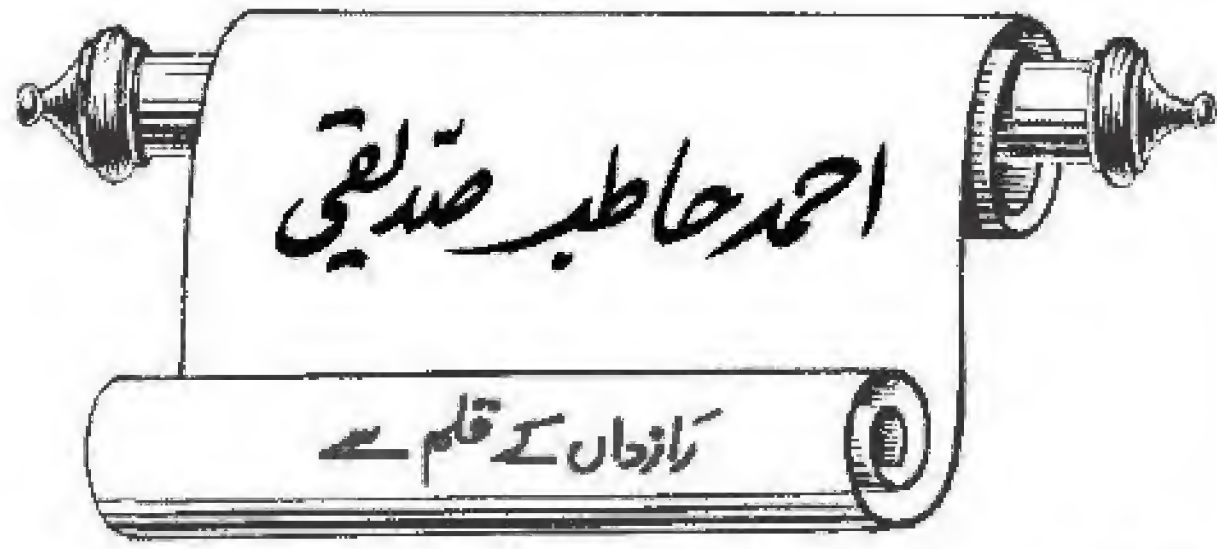 احمد حاطب صدیقی
رازداں کے قلم سے